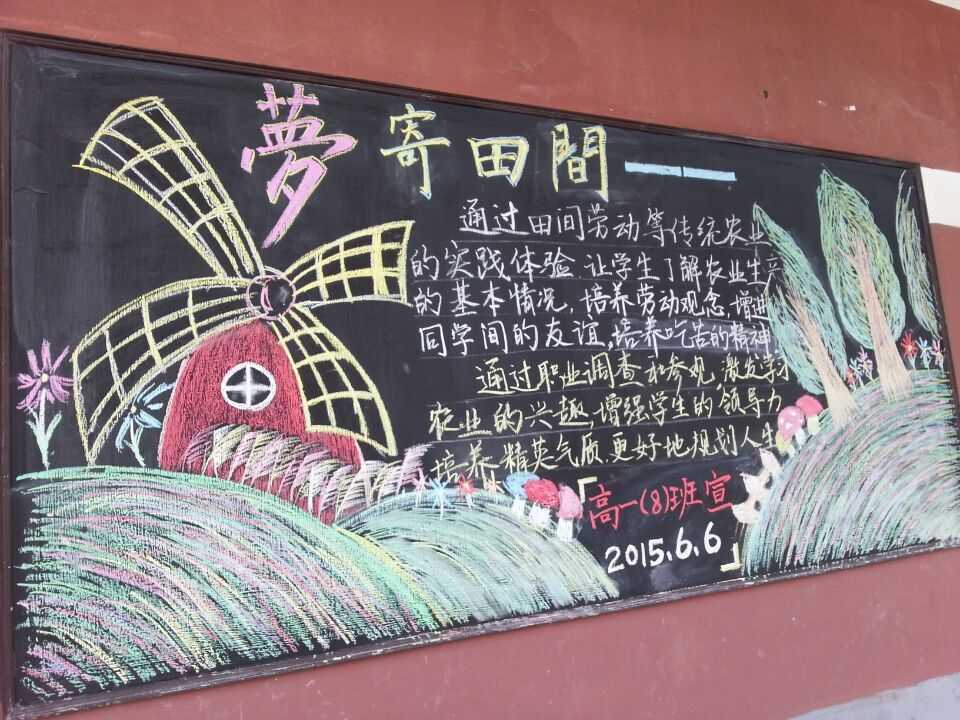 夢寄田間——
通过田间劳动等传统农业
的实践体验,让学生了解农业生产
的基本情况,培养劳动观念,增进
同学间的友谊,培养吃苦的精神
通过职业调查和参观,激发学习
农业的兴趣,增强学生的领导力
培养精英气质,更好地规划人生
「高一(8)班宣
2015.6.6」